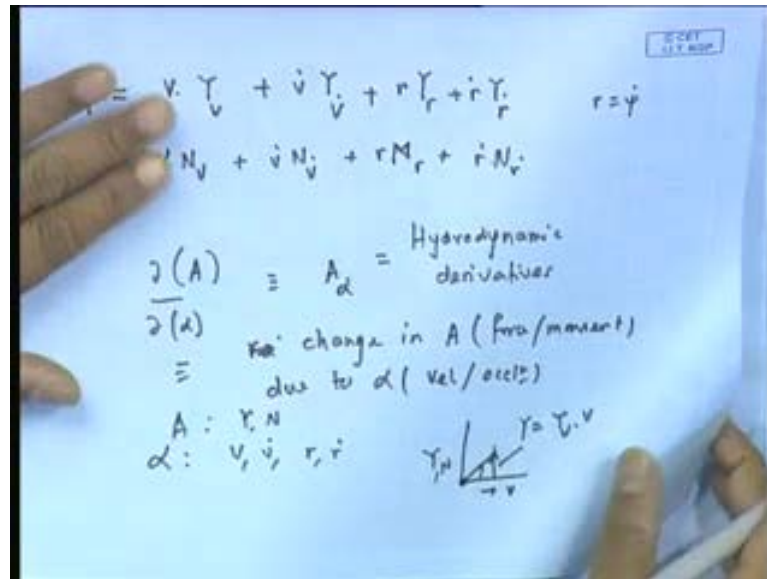 © CET
I.I.T. KGP
= v. Y_v + v̇ Y_v̇ + r Y_r + ṙ Y_ṙ r = ψ̇
N_v + v̇ N_v̇ + r N_r + ṙ N_ṙ
∂(A) / ∂(α) ≡ A_α = Hydrodynamic derivatives
≡ change in A (force/moment)
due to α (vel/accln)
A : Y, N
α : v, v̇, r, ṙ
Y, N Y = Y_v . v
→ v